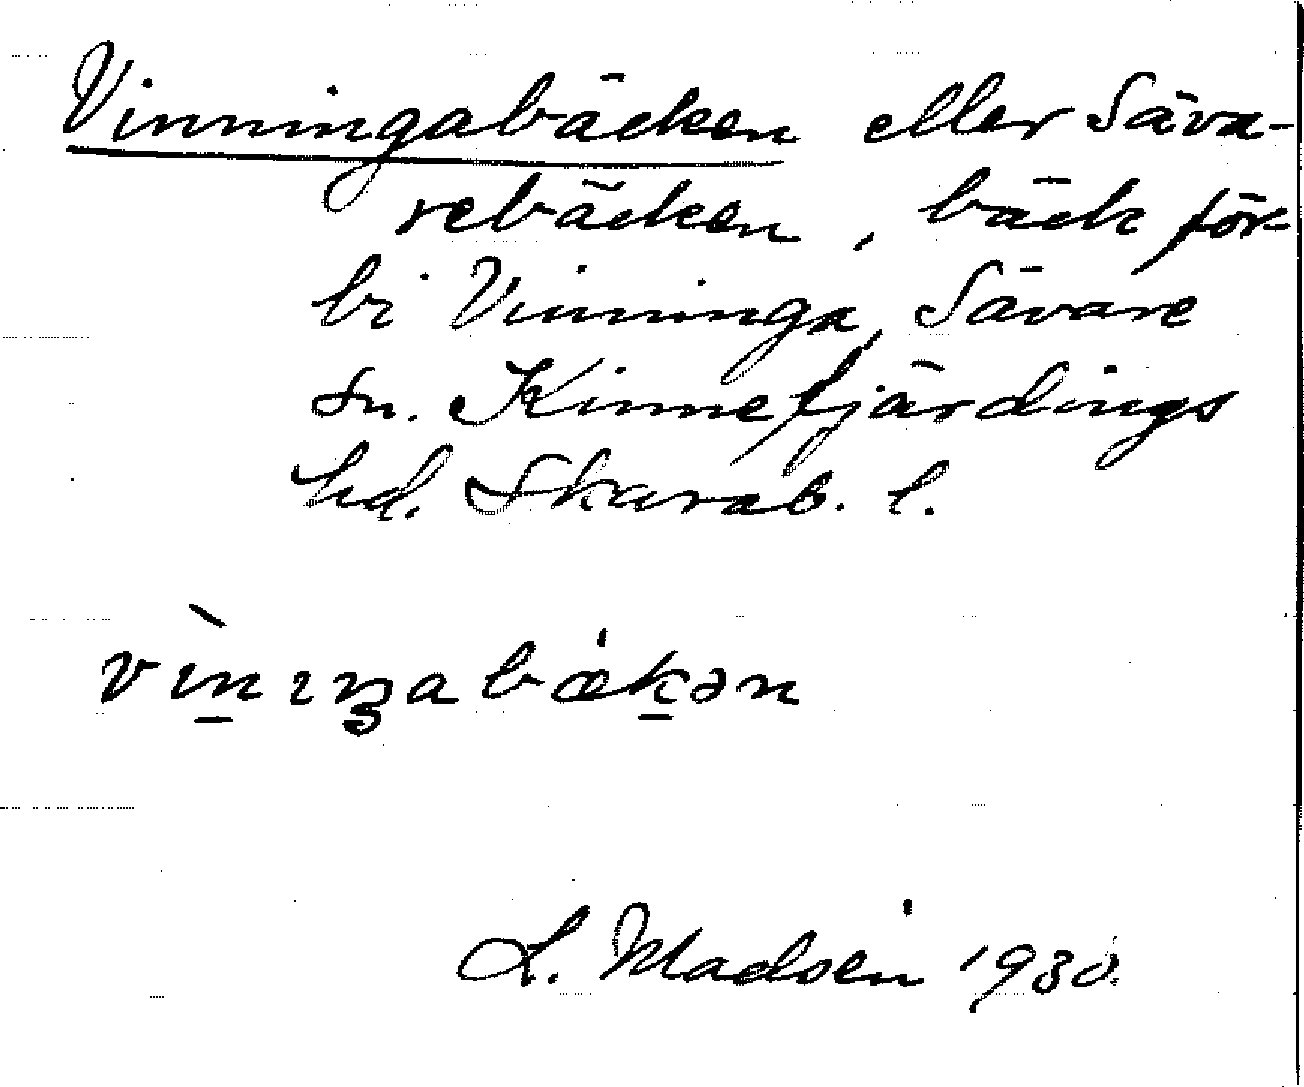 Vinningabäcken eller Säva-
rebäcken, bäck för-
bi Vinninga, Sävare
sn. Kinnefjärdings
hd. Skarab. l.
L. Madsén 1930.